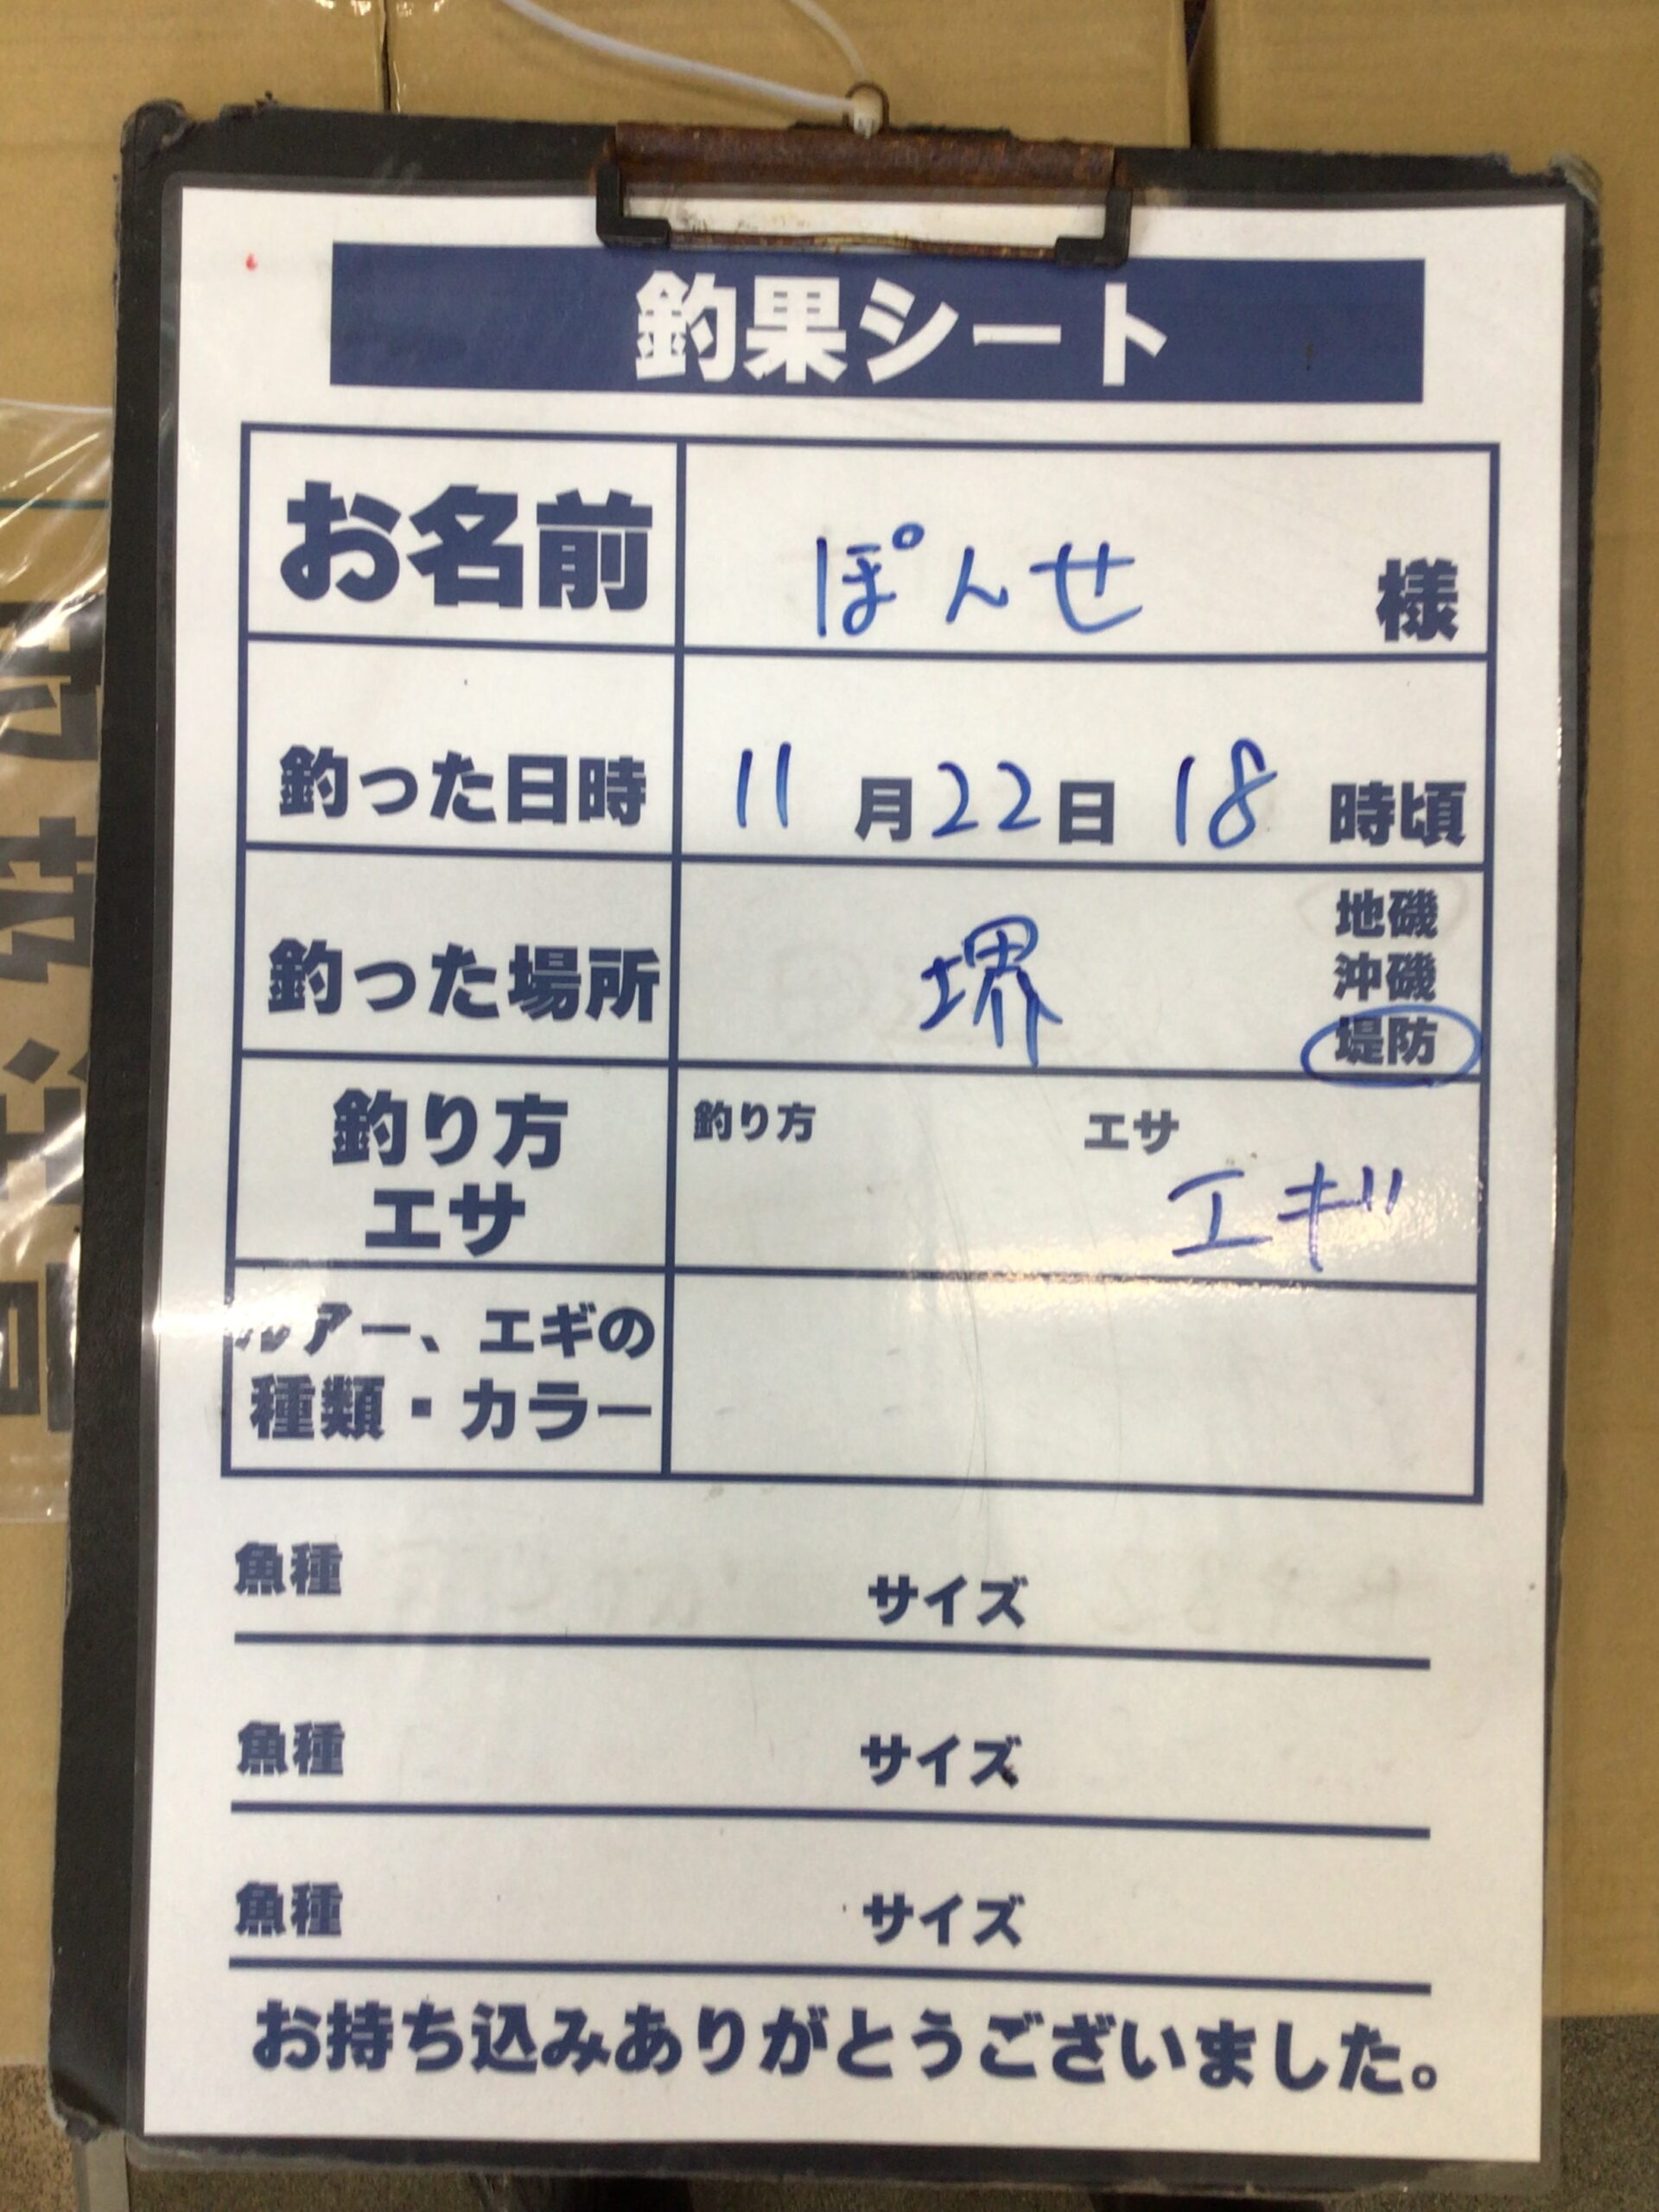 釣果シート
お名前 ぽんせ 様
釣った日時 11月22日 18時頃
釣った場所 堺 地磯
沖磯
堤防
釣り方 釣り方 エサ
エサ エギ
ルアー、エギの
種類・カラー
魚種 サイズ
魚種 サイズ
魚種 サイズ
お持ち込みありがとうございました。